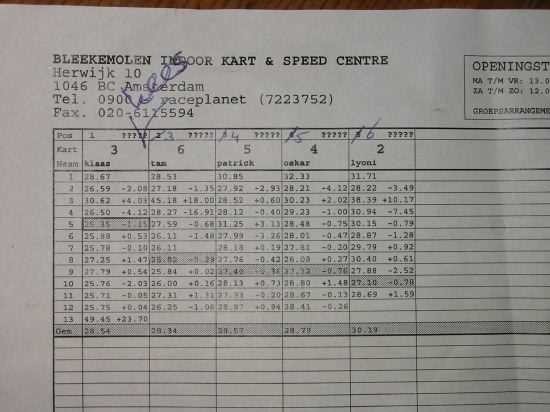 BLEEKEMOLEN INDOOR KART & SPEED CENTRE
Herwijk 10
1046 BC Amsterdam
Tel. 0900 raceplanet (7223752)
Fax. 020-6115594
OPENINGST
MA T/M VR: 13.0
ZA T/M ZO: 12.0
GROEPSARRANGEME
Pos 1 ????? 3 ????? 4 ????? 5 ????? 6 ?????
Kart 3 6 5 4 2
Naam klaas tam patrick oskar lyoni
1 28.67 28.53 30.85 32.33 31.71
2 26.59 -2.08 27.18 -1.35 27.92 -2.93 28.21 -4.12 28.22 -3.49
3 30.62 +4.03 45.18 +18.00 28.52 +0.60 30.23 +2.02 38.39 +10.17
4 26.50 -4.12 28.27 -16.91 28.12 -0.40 29.23 -1.00 30.94 -7.45
5 25.35 -1.15 27.59 -0.68 31.25 +3.13 28.48 -0.75 30.15 -0.79
6 25.88 +0.53 26.11 -1.48 27.99 -3.26 28.01 -0.47 28.87 -1.28
7 25.78 -0.10 26.11 28.18 +0.19 27.81 -0.20 29.79 +0.92
8 27.25 +1.47 25.82 -0.29 27.76 -0.42 28.08 +0.27 30.40 +0.61
9 27.79 +0.54 25.84 +0.02 27.40 -0.36 27.32 -0.76 27.88 -2.52
10 25.76 -2.03 26.00 +0.16 28.13 +0.73 28.80 +1.48 27.10 -0.78
11 25.71 -0.05 27.31 +1.31 27.93 -0.20 28.67 -0.13 28.69 +1.59
12 25.75 +0.04 26.25 -1.06 28.87 +0.94 28.41 -0.26
13 49.45 +23.70
Gem 28.54 28.34 28.57 28.79 30.19